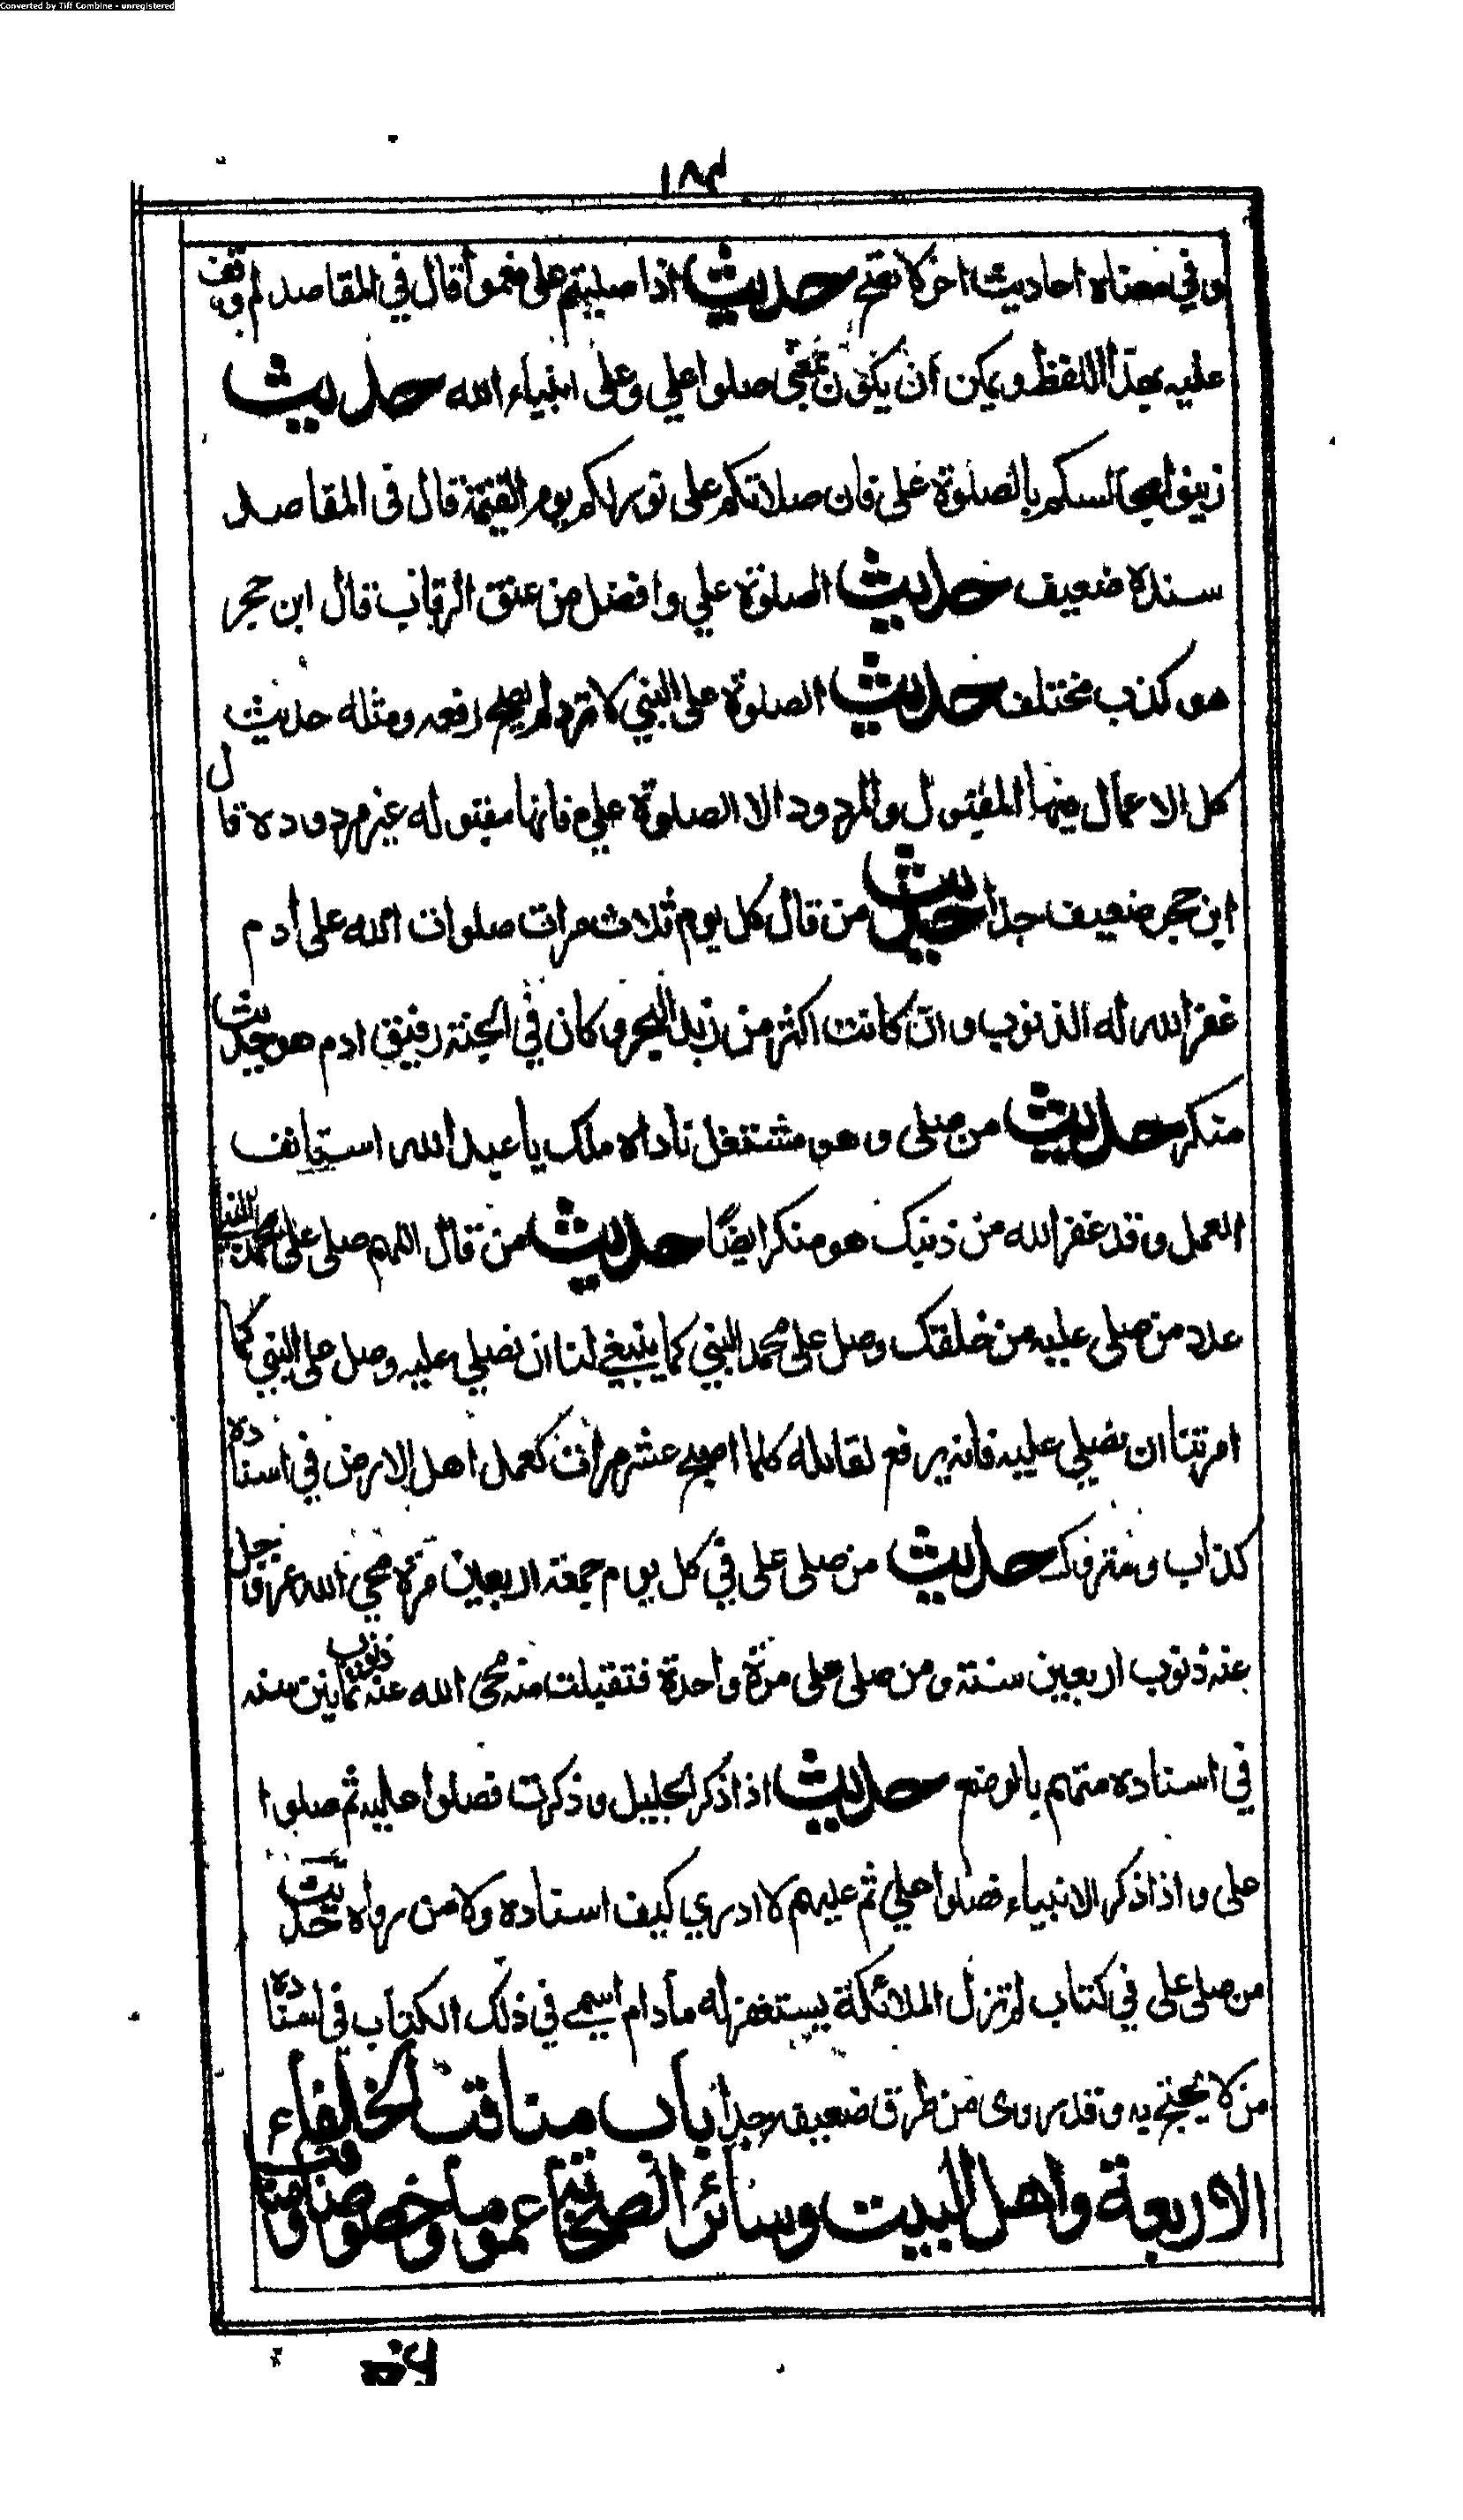 Converted by Tiff Combine - unregistered
١٨٣
وفي معناه احاديث اخر لا تصح حديث اذا صليتم على فعموا قال في المقاصد لم وقف
عليه بهذا اللفظ ويمكن ان يكون بمعنى صلوا علي وعلى انبياء الله حديث
زينوا مجالسكم بالصلوة على فان صلاتكم على نور لكم يوم القيمة قال فى المقاصد
سنده ضعيف حديث الصلوة علي وافضل من عتق الرقاب قال ابن حجر
هو كذب مختلف حديث الصلوة على النبي لا ترد لم يصح رفعه ومثله حديث
كل الاعمال منها المقبول والمردود الا الصلوة علي فانها مقبوله غير مردوده قال
ابن حجر ضعيف جدا حديث من قال كل يوم ثلاث مرات صلوات الله على ادم
غفر الله له الذنوب وان كانت اكثر من زبد البحر وكان في الجنة رفيق ادم هو حديث
منكر حديث من صلى وهو مشتغل ناداه ملك يا عبد الله استانف
العمل وقد غفر الله من ذنبك هو منكر ايضًا حديث من قال اللهم صلى على محمد النبي
عدد من صلى عليه من خلقك وصل على محمد النبي كما ينبغي لنا ان نصلي عليه وصل على النبي كما
امرتنا ان نصلي عليه فانه يرفع لقائله كلما اصبح عشر مرات كعمل اهل الارض في اسناده
كذاب ومتروك حديث من صلى على في كل يوم جمعة اربعين مرة محي الله عز وجل
عنه ذنوب اربعين سنة ومن صلى على مرة واحدة فتقبلت منه محى الله عنه ذنوب ثمانين سنه
في اسناده متهم بالوضع حديث اذا ذكر الجليل وذكرت فصلوا عليه ثم صلوا
على واذا ذكر الانبياء فصلوا علي ثم عليهم لا ادري كيف اسناده ولا من رواه حديث
من صلى على في كتاب لم تزل الملائكة يستغفر له مادام اسمي في ذلك الكتاب في اسناده
من لا يحتج به وقد روى من طرق ضعيفه جدا باب مناقب الخلفاء
الاربعة واهل البيت وسائر الصحابة عموما وخصوصا ومناقب